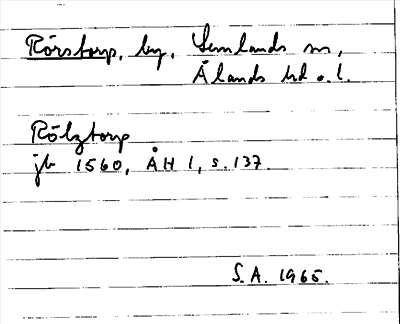 Rörstorp, by, Lemlands sn,
Ålands hd o. l.
Rölztorp
jb 1560, ÅH 1, s. 137.
S.A. 1965.